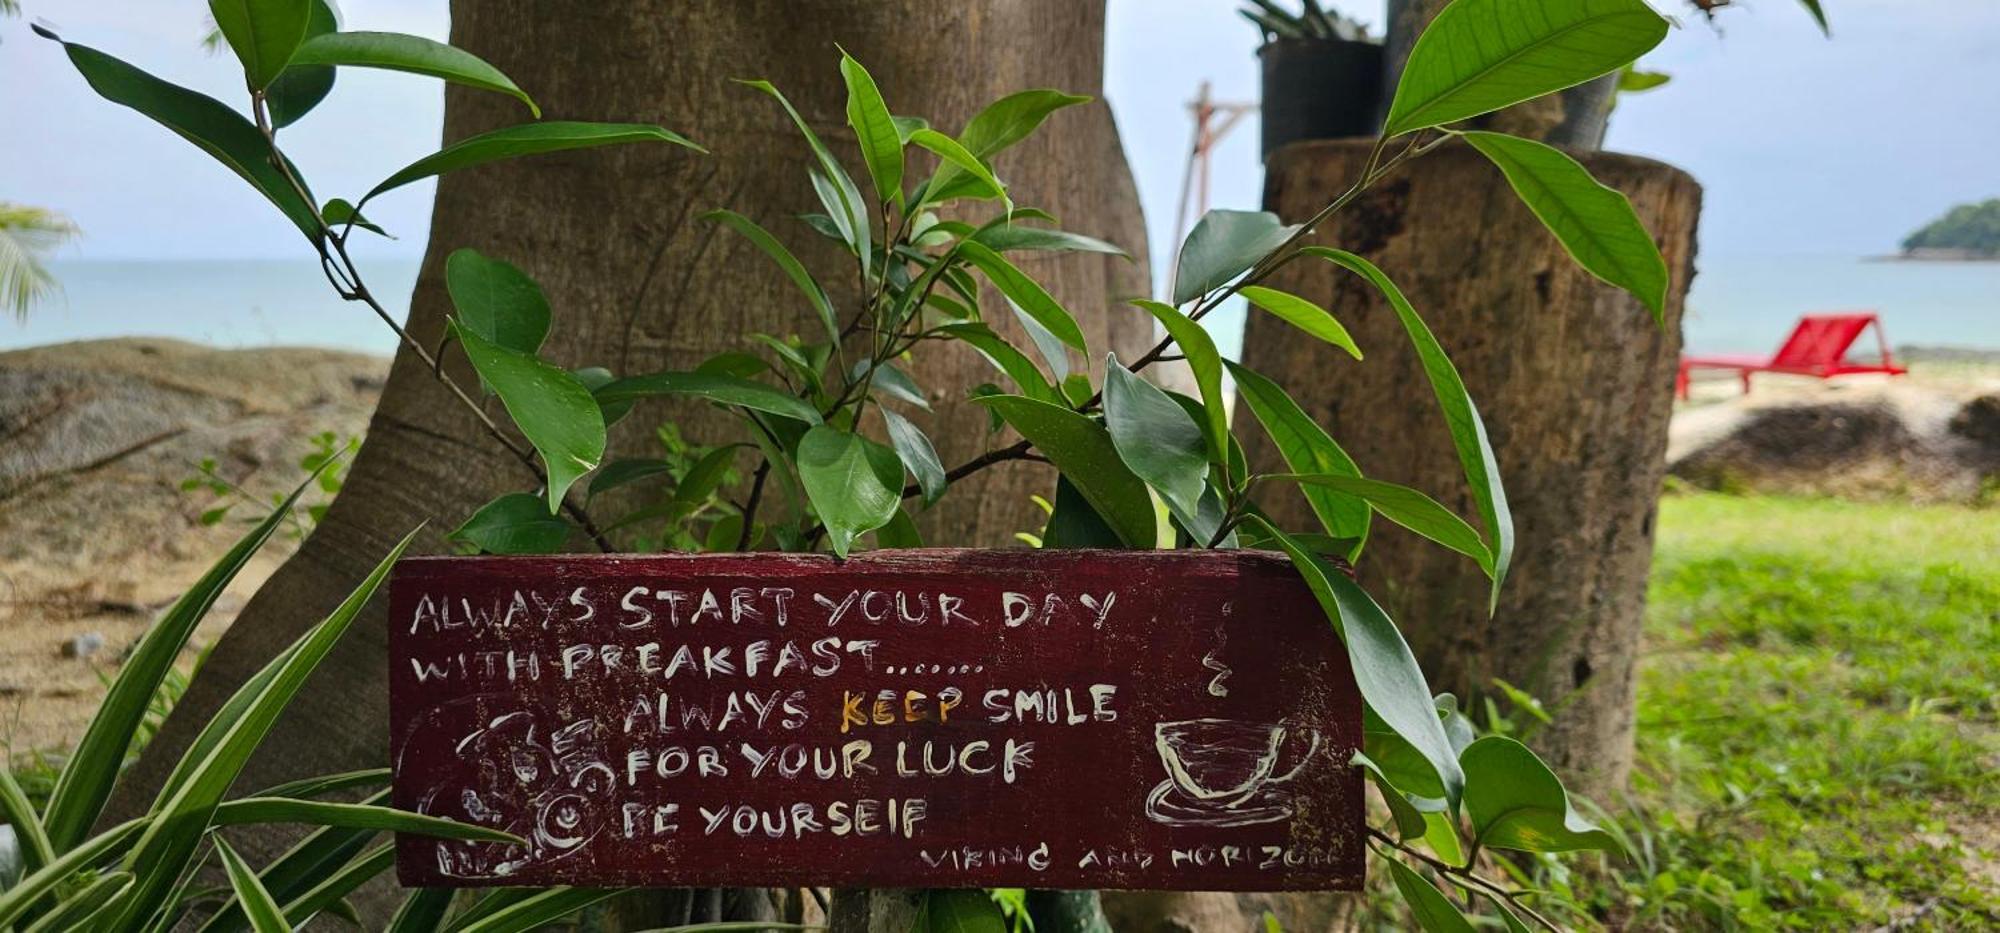 ALWAYS START YOUR DAY
WITH BREAKFAST.......
ALWAYS KEEP SMILE
FOR YOUR LUCK
BE YOURSELF
VIKING AND HORIZON